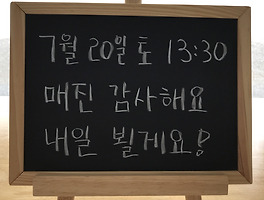 7월 20일 토 13:30
매진 감사해요
내일 뵐게요!